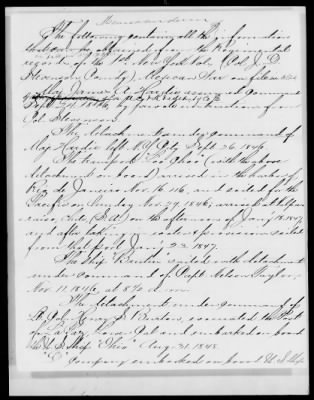 Memorandum
The following contains all the information
that can be obtained from the Regimental
records of the 1st New York Vols. (Col. J. D.
Stevenson Comdg), Mexican War on file
Major James A. Hardie assumed command
by private instructions from
Col. Stevenson.
The detachment under command of
Maj Hardie left N.Y. City Sept. 26, 1846
The transport "Loo Choo" (with the above
detachment on board) arrived in the harbor of
Rio de Janeiro Nov. 16, '46, and sailed for the
Pacific on Sunday Nov. 29, 1846; arrived at Valpa-
raiso, Chile (S.A.) on the afternoon of Jan'y 1847
and after taking on water & provisions sailed
from that Port Jan'y 22 1847.
The Ship "Brutus" sailed with detachment
under command of Capt. Nelson Taylor,
Nov. 11, 1846, at 8 70 a.m.
The detachment under command of
Lt. Col. Henry S. Burton, evacuated the Port
of La Paz, Lower Cal. and embarked on board
the U.S. Ship "Ohio" Aug. 31, 1848.
"E" Company embarked on board U.S. Ship